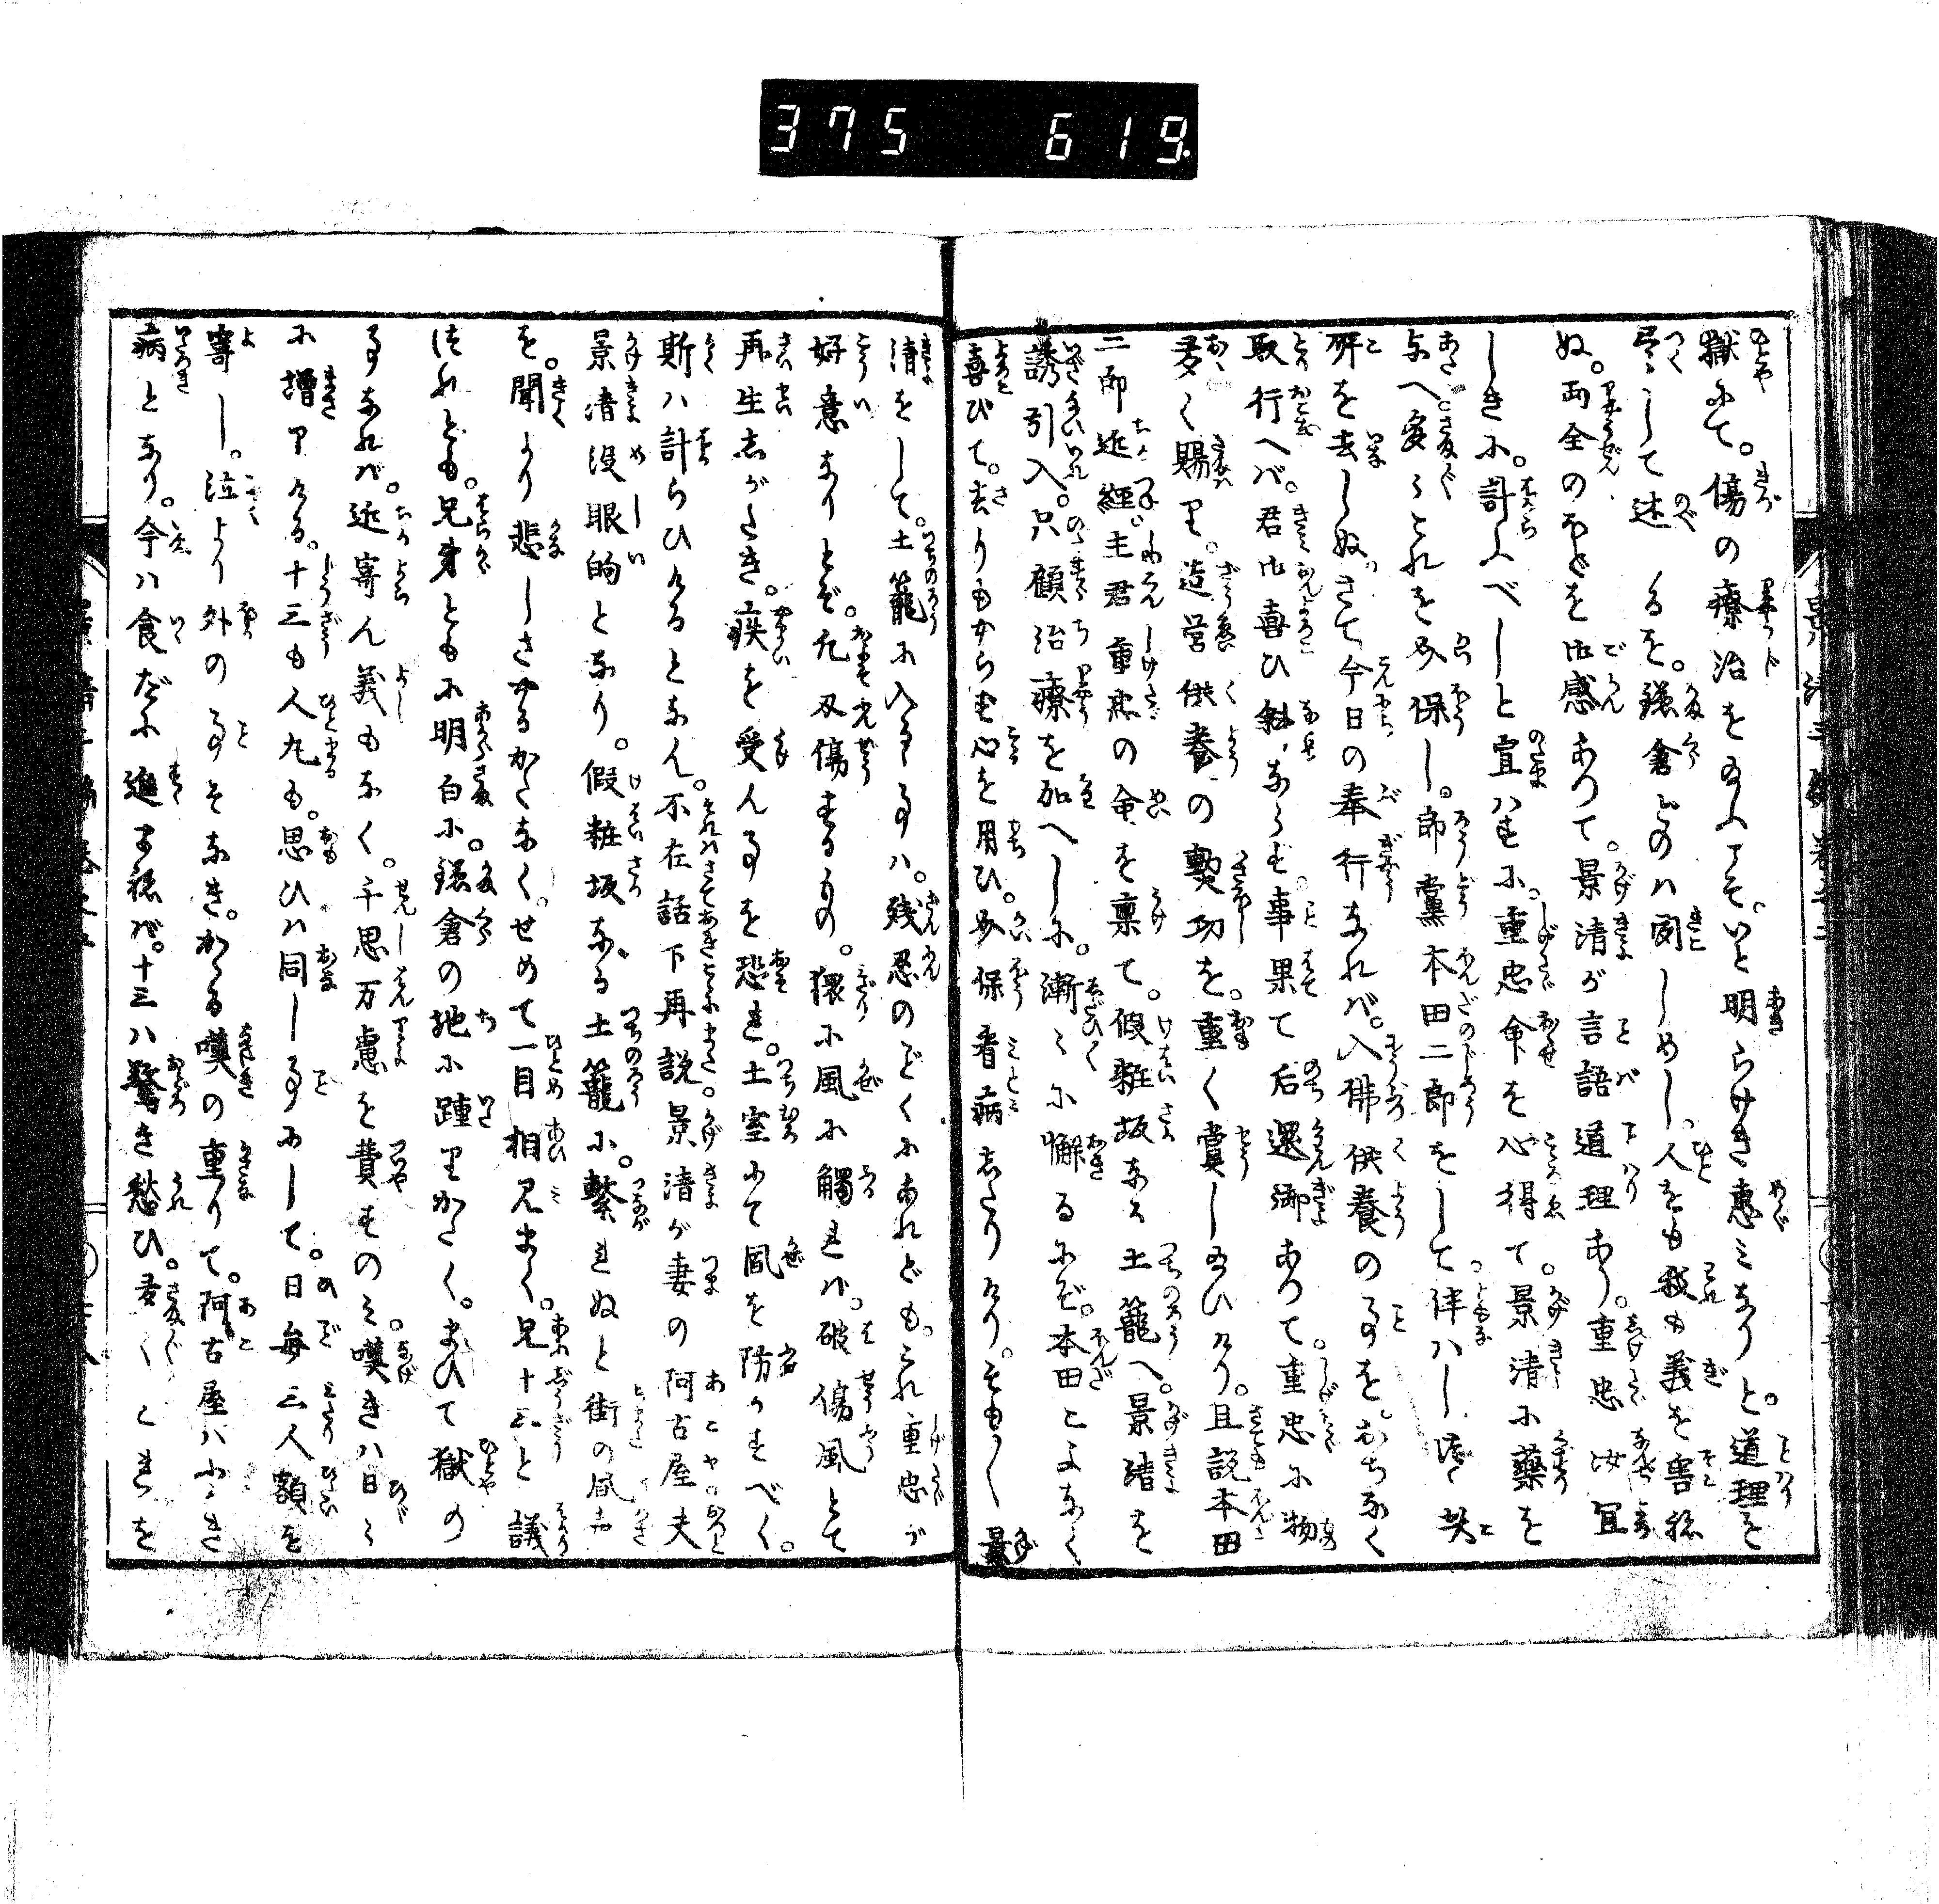 375 619
獄にて。傷の療治を給へかし。いと明らけき恵ミなりと。道理を
尽して述るを。鎌倉どのハ聞しめし。人をも我も義を害ね
ぬ。両全のほどを御感あつて。景清が言語道理あり。重忠汝宜
しきに。計ふべしと宣はすに。重忠命を心得て。景清に薬を
与へ。爰これを介保し。郎党本田二郎をして。伴ハし
群を去しぬ。さて今日の奉行なれバ。入佛供養の事を。おちなく
取行へバ。君御喜ひ斜ならず。事果て后還御あつて。重忠に物
多く賜り。造営供養の勲功を。重く賞し給ひけり。且説本田
二郎近経。主君重忠の命を稟て。假粧坂なる土籠へ。景清を
誘引入。只顧治療を加へしに。漸々に懈るにぞ。本田こよなく
喜びて。去りもやらず心を用ひ。介保看病したりけり。そも〳〵景
清をして。土籠に入たる事ハ。残忍のごくにあれども。これ重忠が
好意なりとぞ。凡刄傷するもの。猥に風に觸れバ。破傷風とて
再生しがたき。疾を受ん事を恐れ。土室にて風を防かすべく。
斯ハ計らひけるとなん。不在話下再説景清が妻の阿古屋夫
景清没眼的となり。假粧坂なる土籠に。繋れぬと街の風声
を。聞より悲しさやるかたなく。せめて一目相見まく。兄十三と議
つれども。兄弟ともに明白に。鎌倉の地に踵りがたく。まひて獄の
事なれバ。近寄ん義もなく。千思万慮を費すのミ。嘆きハ日々
に増りける。十三も人丸も。思ひハ同し事にして。日毎三人額を
寄し。泣より外の事ぞなき。かゝる嘆の重りて。阿古屋ハふしき
病となり。今ハ食だに進まねバ。十三ハ驚き愁ひ。君〳〵これらを